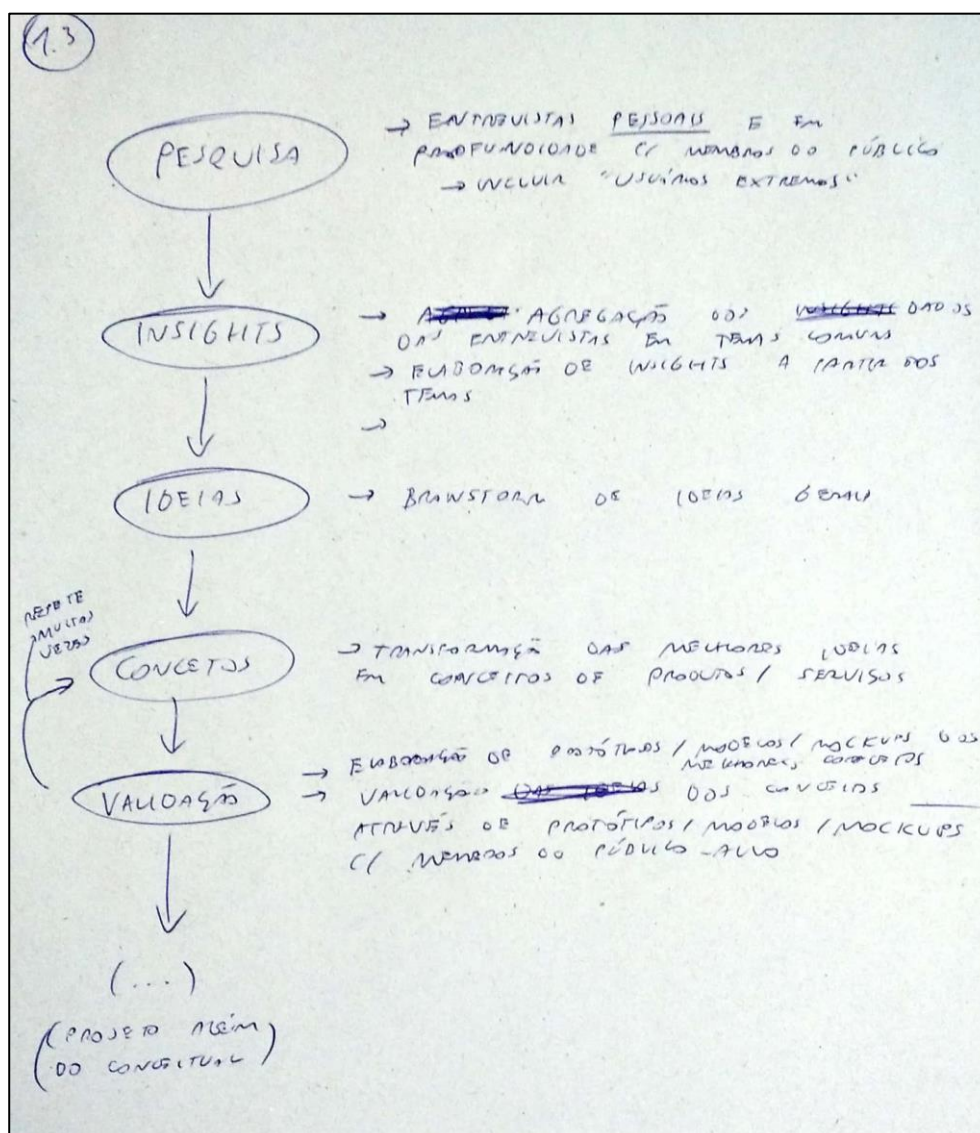 1.3
PESQUISA
→ ENTREVISTAS PESSOAIS E EM
PROFUNDIDADE C/ MEMBROS DO PÚBLICO
→ INCLUIR "USUÁRIOS EXTREMOS"
INSIGHTS
→ AGREGAÇÃO DOS DADOS
DAS ENTREVISTAS EM TEMAS COMUNS
→ ELABORAÇÃO DE INSIGHTS A PARTIR DOS
TEMAS
→
IDEIAS
→ BRAINSTORM DE IDEIAS GERAIS
REPETE
MUITAS
VEZES
CONCEITOS
→ TRANSFORMAÇÃO DAS MELHORES IDEIAS
EM CONCEITOS DE PRODUTOS / SERVIÇOS
VALIDAÇÃO
→ ELABORAÇÃO DE PROTÓTIPOS / MODELOS / MOCKUPS DOS
MELHORES CONCEITOS
→ VALIDAÇÃO DOS CONCEITOS
ATRAVÉS DE PROTÓTIPOS / MODELOS / MOCKUPS
C/ MEMBROS DO PÚBLICO-ALVO
(...)
(PROJETO ALÉM
DO CONCEITUAL)